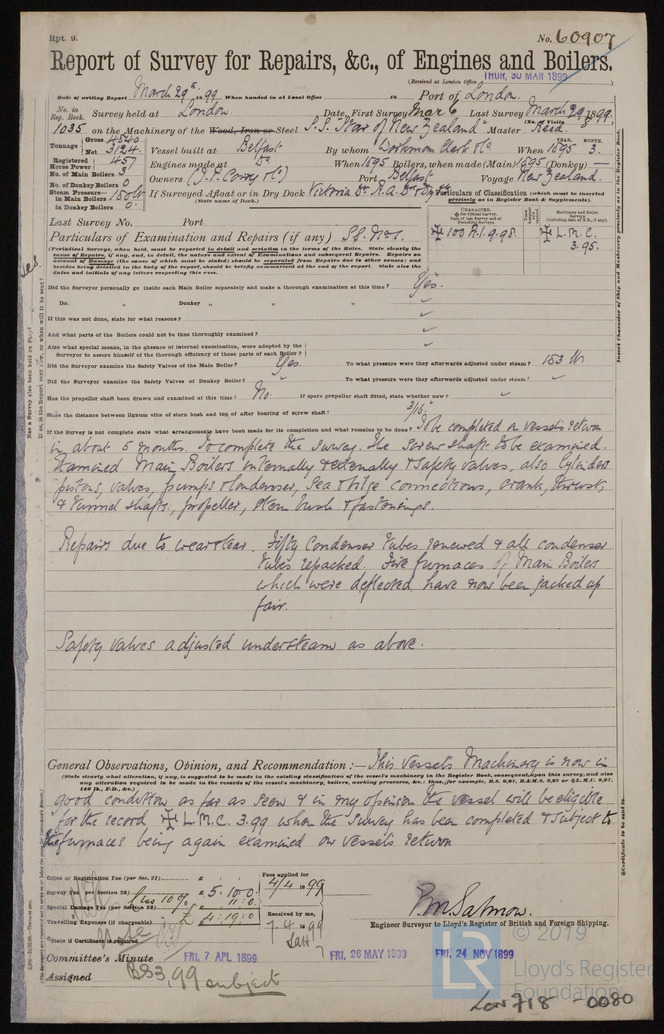 Rpt. 9.
No. 60907
Report of Survey for Repairs, &c., of Engines and Boilers.
(Received at London Office
THUR. 30 MAR 1899
Date of writing Report March 29th 1899 When handed in at Local Office
Port of London.
No. in Reg. Book.
Survey held at London.
Date, First Survey Mar 6 Last Survey March 29 1899
1035 on the Machinery of the Wood, Iron or Steel S.S. "Star of New Zealand" Master Reed.
Tonnage Gross 4840 Net 3124
Vessel built at Belfast By whom Workman Clark & Co When 1895 MONTH. 3.
Registered Horse Power 457
Engines made at Do When 1895 Boilers, when made (Main) 1895 (Donkey) —
No. of Main Boilers 3
No. of Donkey Boilers 0
Owners (J.P. Corry & Co) Port Belfast Voyage New Zealand.
Steam Pressure in Main Boilers 150 lb
in Donkey Boilers 0
If Surveyed Afloat or in Dry Dock Victoria Dk R.A. Dk & Dry Dk
(State name of Dock.)
Particulars of Classification (which must be inserted precisely as in Register Book & Supplements).
Last Survey No. Port
100 A.1. 9.98
L.M.C. 3.95.
Particulars of Examination and Repairs (if any) SS. No 1.
Did the Surveyor personally go inside each Main Boiler separately and make a thorough examination at this time? Yes.
Do. " Donkey " " "
If this was not done, state for what reasons?
And what parts of the Boilers could not be thoroughly examined?
Also what special means, in the absence of internal examination, were adopted by the Surveyor to assure himself of the thorough efficiency of those parts of each Boiler?
Did the Surveyor examine the Safety Valves of the Main Boiler? Yes. To what pressure were they afterwards adjusted under steam? 153 lb
Did the Surveyor examine the Safety Valves of Donkey Boiler? To what pressure were they afterwards adjusted under steam?
Has the propeller shaft been drawn and examined at this time? No. If spare propeller shaft fitted, state whether new?
State the distance between lignum vitæ of stern bush and top of after bearing of screw shaft? 3/16"
If the Survey is not complete state what arrangements have been made for its completion and what remains to be done? To be completed on vessels return
in about 5 months. To complete the survey. The screw shaft to be examined.
Examined Main Boilers internally & externally & safety valves, also Cylinders
pistons, valves, pumps & Condenser, sea & bilge connections, crank, thrust,
& tunnel shafts, propeller, stern bush & fastenings.
Repairs due to wear & tear. Fifty Condenser tubes renewed & all condenser
tubes repacked. Five furnaces of Main Boilers
which were deflected have now been jacked up
fair.
Safety valves adjusted under steam as above.
General Observations, Opinion, and Recommendation :— This vessels Machinery is now in
(State clearly what alteration, if any, is suggested to be made in the existing classification of the vessel's machinery in the Register Book, consequent upon this survey, and also
any alteration required to be made in the records of the vessel's machinery, boilers, working pressure, &c.:
good condition as far as seen & in my opinion the vessel will be eligible
for the record L.M.C. 3.99 when the survey has been completed & subject to
the furnaces being again examined on vessels return
Office or Registration Fee (per Sec. 27)
Survey Fee (per Section 28) £ 5.10.0
Special Damage Fee (per Section 28) Less 10% 11.0
Travelling Expenses (if chargeable) £ 4.19.0
Fees applied for 4/4 1899
Received by me, 7.4.1899
State if Certificate is required
P.M. Salmon.
Engineer Surveyor to Lloyd's Register of British and Foreign Shipping.
Committee's Minute FRI. 7 APL 1899 FRI. 26 MAY 1899 FRI. 24 NOV 1899
Assigned BS 3,99 subject
© 2019
LR
Lloyd's Register
Foundation
Lon 718 - 0080